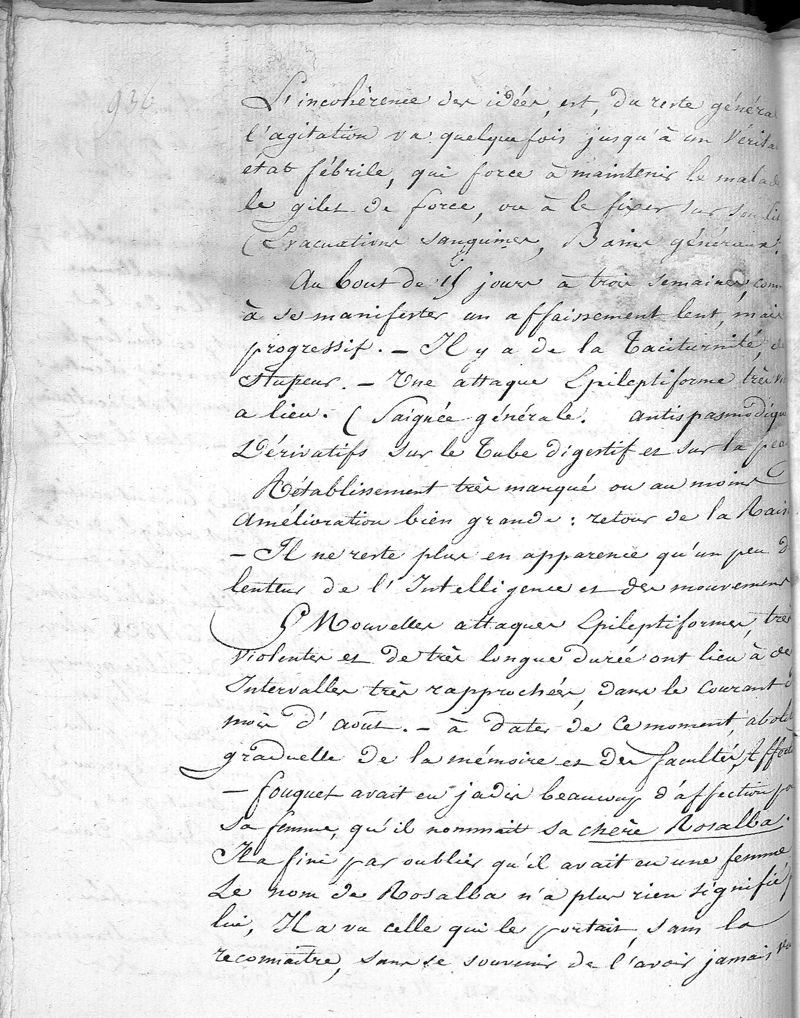 936
L'incohérence des idées, est, du reste généra
l'agitation va quelquefois jusqu'à un vérita
etat fébrile, qui force à maintenir le malade
le gilet de force, ou à le fixer sur son lit
(Evacuations sanguines, Bains généraux.
Au bout de 15 jours à trois semaines, com
à se manifester un affaissement lent, mais
progressif. — Il y a de la Taciturnité, de
Stupeur. — Une attaque Epileptiforme très
a lieu. (Saignée générale. Antispasmodiqu
Dérivatifs sur le Tube digestif et sur la peau
Rétablissement très marqué ou au moins
Amélioration bien grande : retour de la Rais
— Il ne reste plus en apparence qu'un peu d
lenteur de l'Intelligence et des mouvemens
Nouvelles attaques Epileptiformes, très
violentes et de très longue durée ont lieu à des
Intervalles très rapprochés, dans le courant d
mois d'août. — à dater de ce moment, abolit
graduelle de la mémoire et des facultés Affect
— fouquet avait eu jadis beaucoup d'affection po
sa femme, qu'il nommait sa chère Rosalba.
Il a fini par oublier qu'il avait eu une femme
Le nom de Rosalba n'a plus rien signifié p
lui, Il a vu celle qui le portait, sans la
reconnaître, sans se souvenir de l'avoir jamais vu